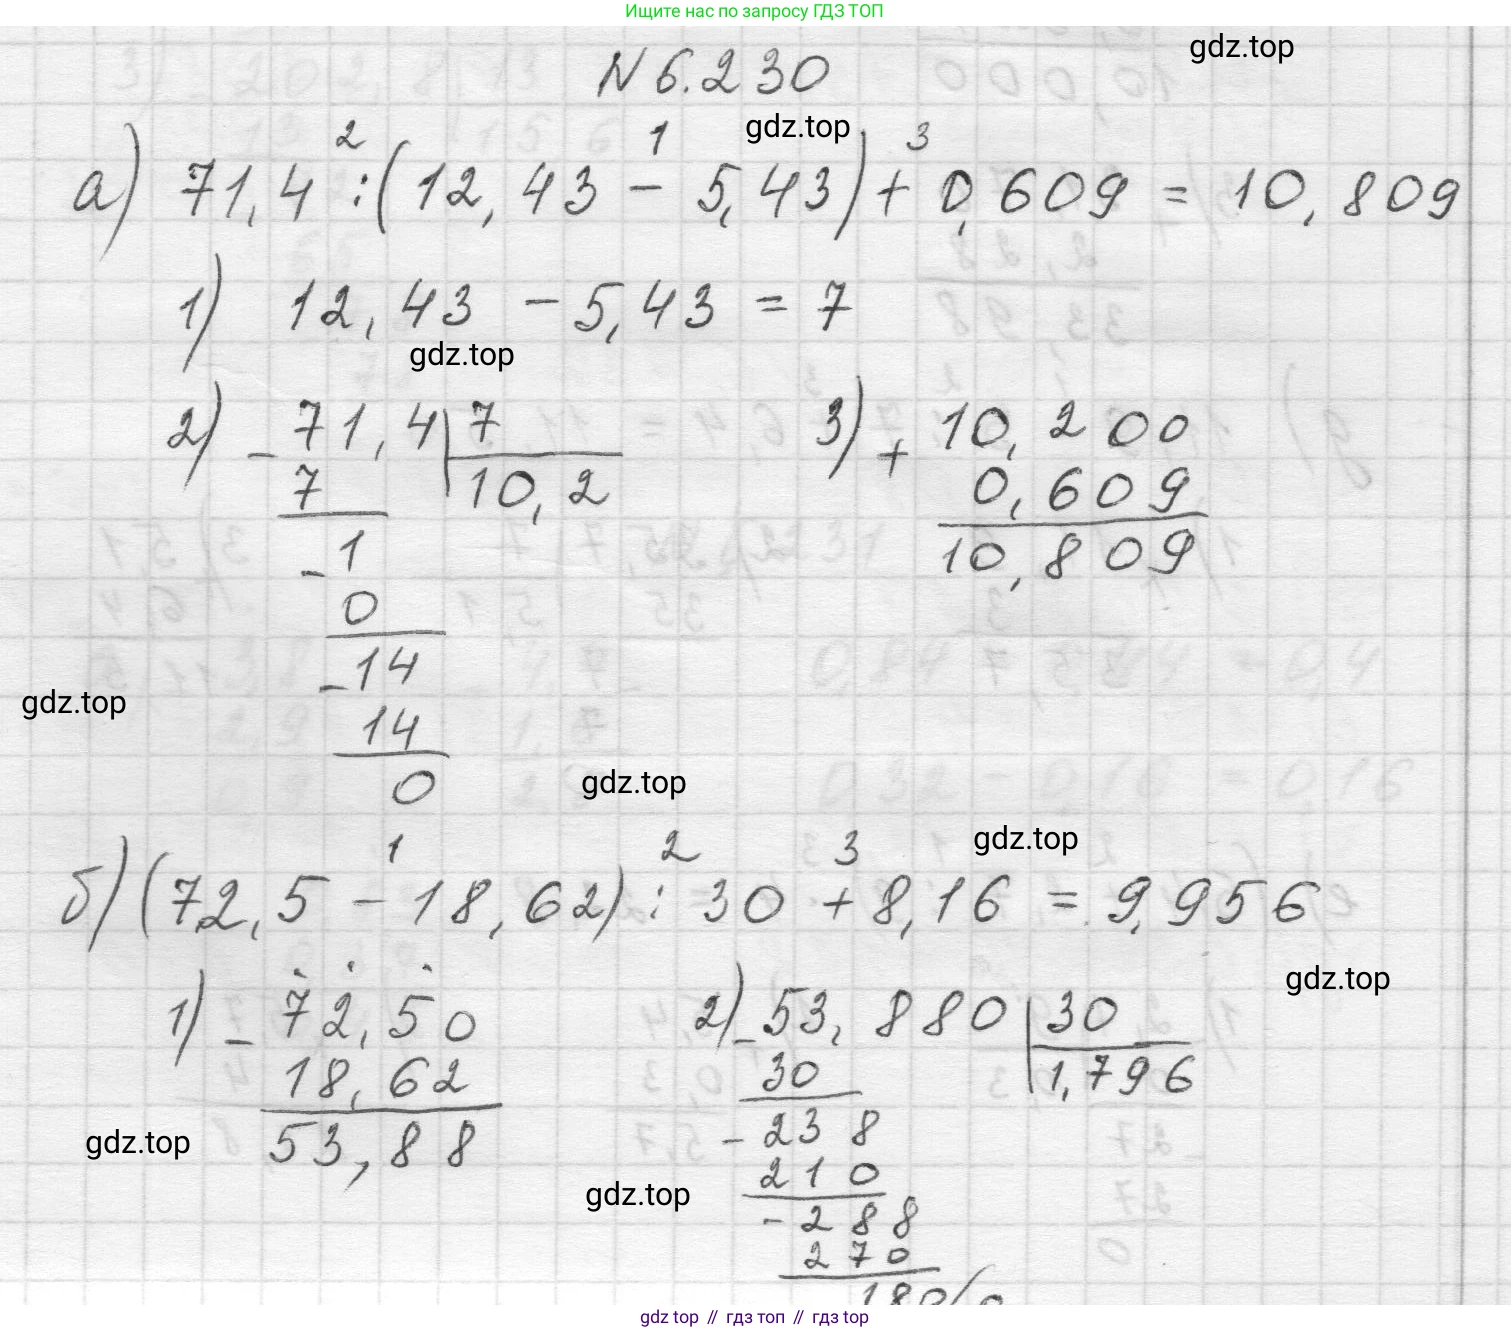 Ищите нас по запросу ГДЗ ТОП
gdz.top
N 6.230
gdz.top
2 1 3
а) 71,4 : (12,43 - 5,43) + 0,609 = 10,809
1) 12,43 - 5,43 = 7
gdz.top
2) - 71,4 | 7
7 10,2
- 1
0
- 14
14
0
3) + 10,200
0,609
10,809
gdz.top
gdz.top
gdz.top
1 2 3
б) (72,5 - 18,62) : 30 + 8,16 = 9,956
gdz.top
1) - 72,50
18,62
53,88
2) - 53,880 | 30
30 1,796
- 238
210
- 288
270
180/0
gdz.top
gdz.top
gdz top // гдз топ // gdz top